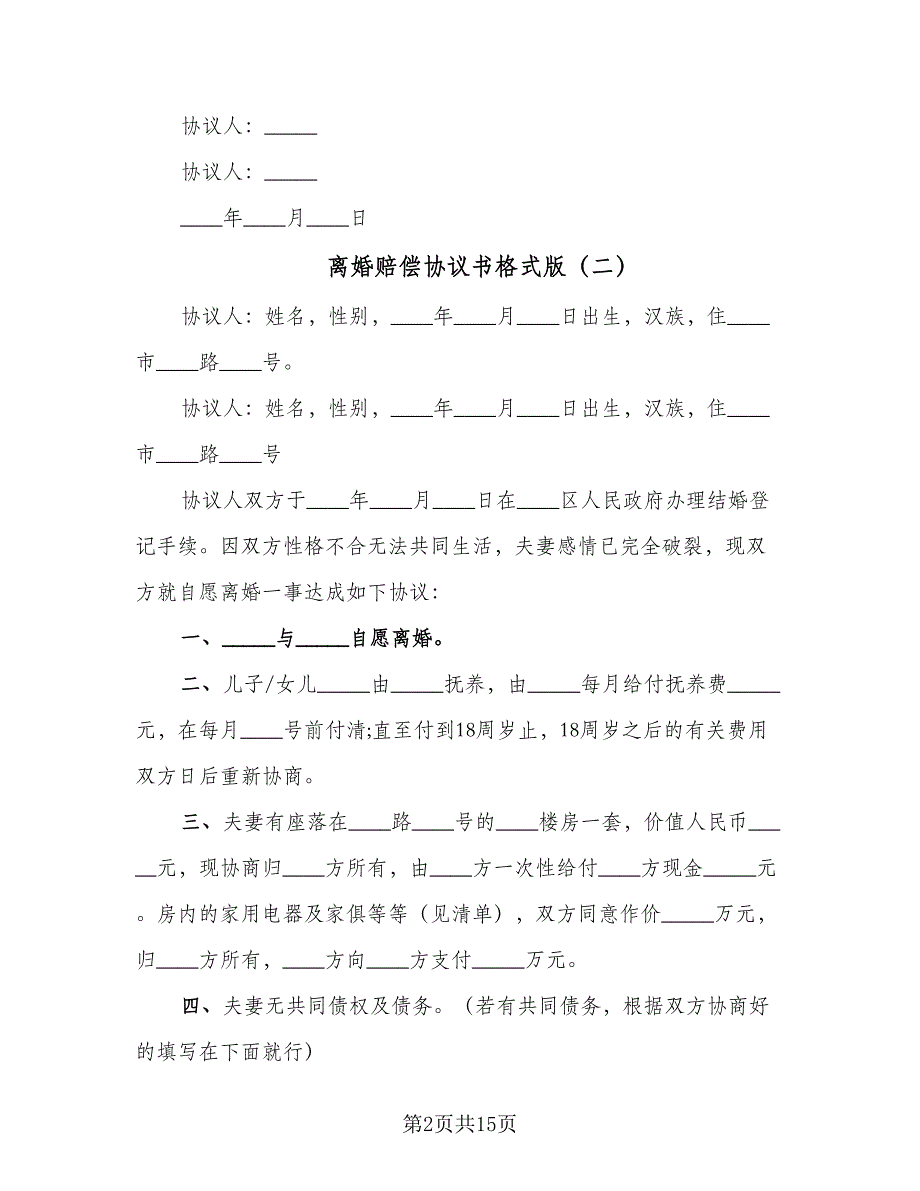 协议人：_____
协议人：_____
____年____月____日
离婚赔偿协议书格式版（二）
协议人：姓名，性别，____年____月____日出生，汉族，住____
市____路____号。
协议人：姓名，性别，____年____月____日出生，汉族，住____
市____路____号
协议人双方于____年____月____日在____区人民政府办理结婚登
记手续。因双方性格不合无法共同生活，夫妻感情已完全破裂，现双
方就自愿离婚一事达成如下协议：
一、_____与_____自愿离婚。
二、儿子/女儿_____由_____抚养，由_____每月给付抚养费_____
元，在每月____号前付清;直至付到18周岁止，18周岁之后的有关费用
双方日后重新协商。
三、夫妻有座落在____路____号的____楼房一套，价值人民币___
__元，现协商归____方所有，由____方一次性给付____方现金_____元
。房内的家用电器及家俱等等（见清单），双方同意作价_____万元，
归____方所有，____方向____方支付_____万元。
四、夫妻无共同债权及债务。（若有共同债务，根据双方协商好
的填写在下面就行）
第2页共15页